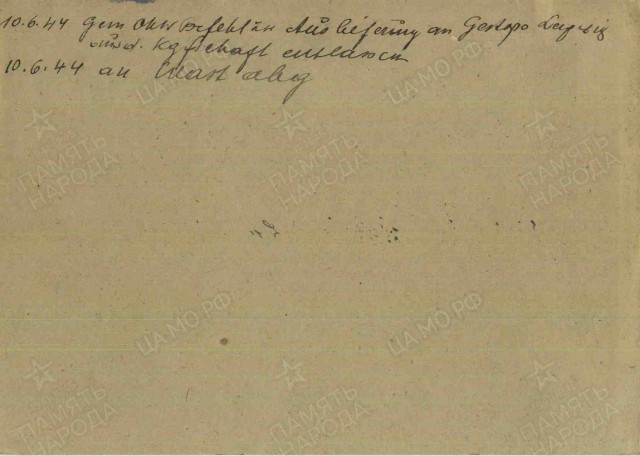 10.6.44 gem OKW Befehl zw Auslieferung an Gestapo Leipzig
aus d. Kgfschaft entlassen
10.6.44 an Wast abg
ПАМЯТЬ НАРОДА
ЦА МО РФ
ПАМЯТЬ НАРОДА
ПАМЯТЬ НАРОДА
ПАМЯТЬ НАРОДА
ЦА МО РФ
ЦА МО РФ
ПАМЯТЬ НАРОДА
ПАМЯТЬ НАРОДА
ПАМЯТЬ НАРОДА